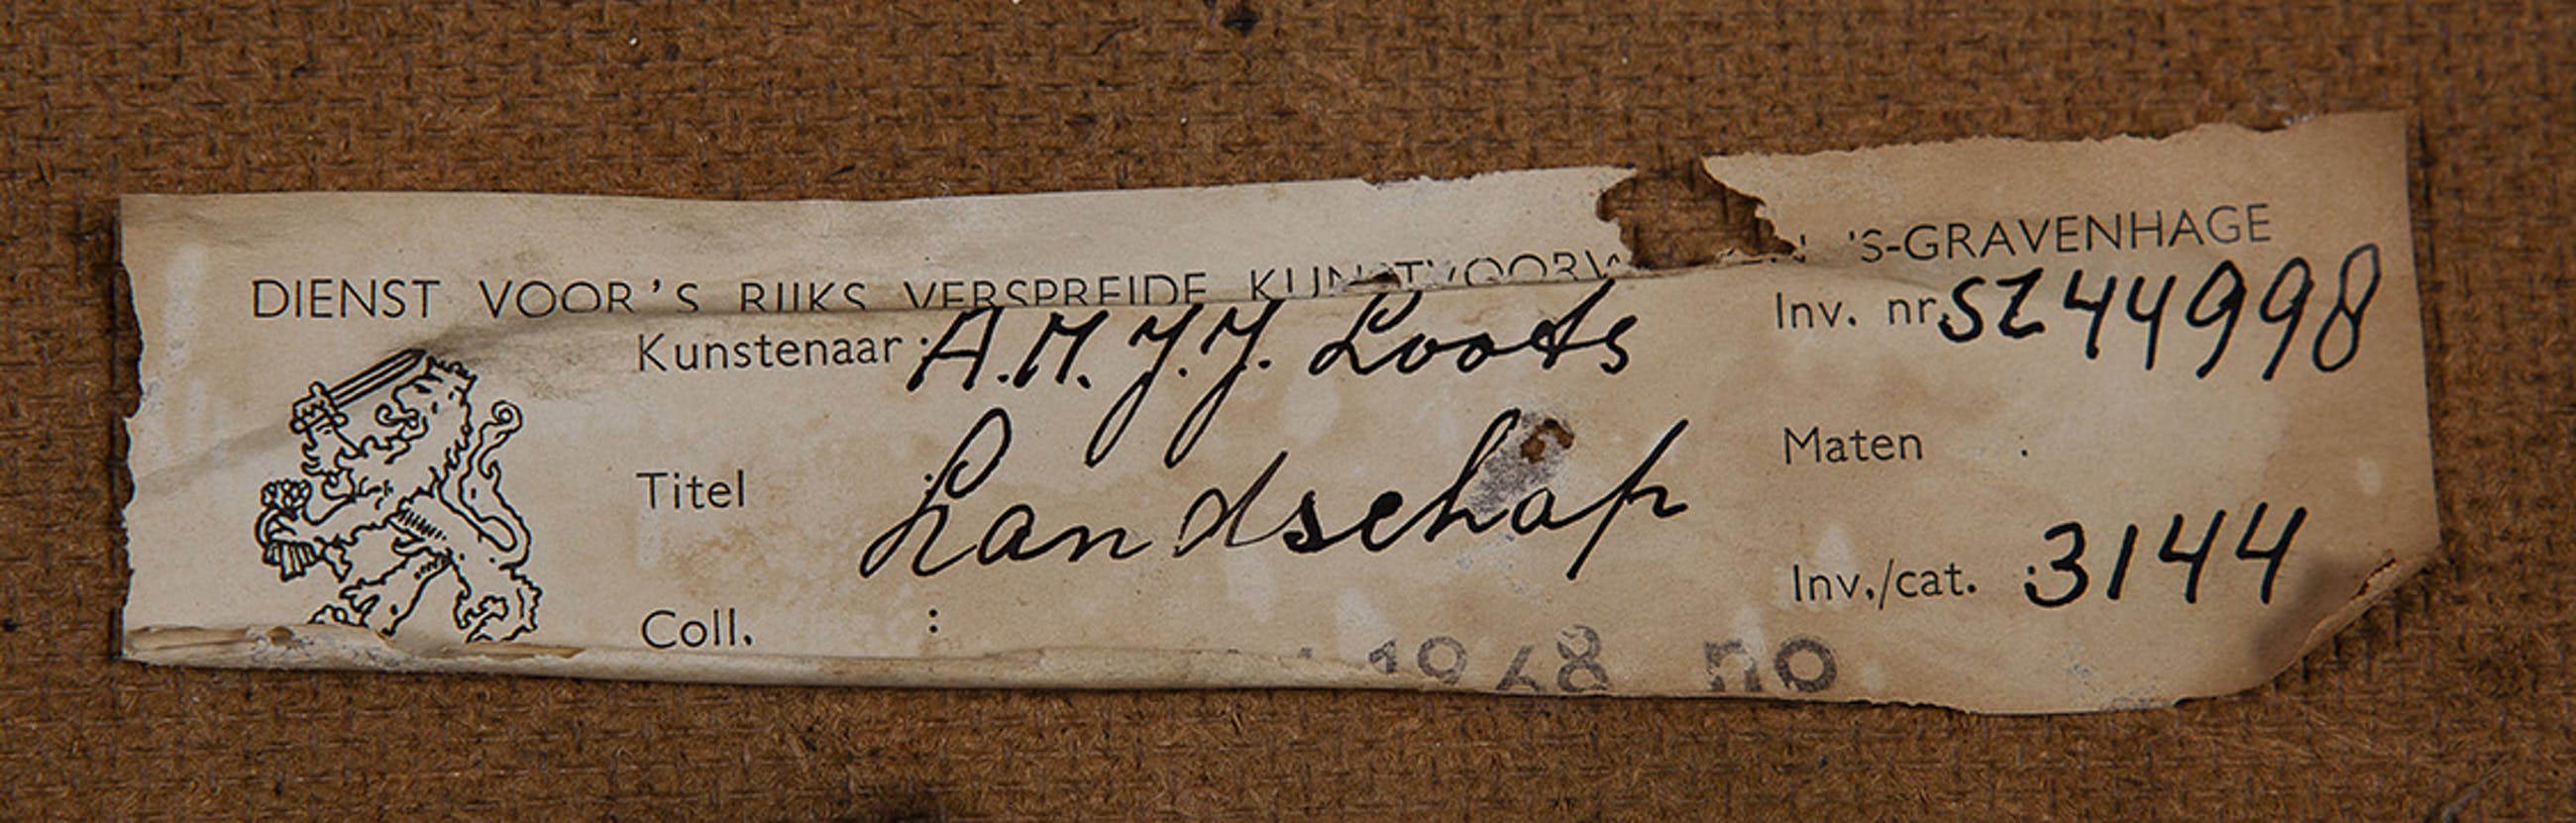 DIENST VOOR 'S RIJKS VERSPREIDE KUNSTVOORW N 'S-GRAVENHAGE
Kunstenaar : A.M.J.J. Loots
Inv. nr. SZ44998
Titel : Landschap
Maten .
Coll. :
Inv./cat. : 3144
1968